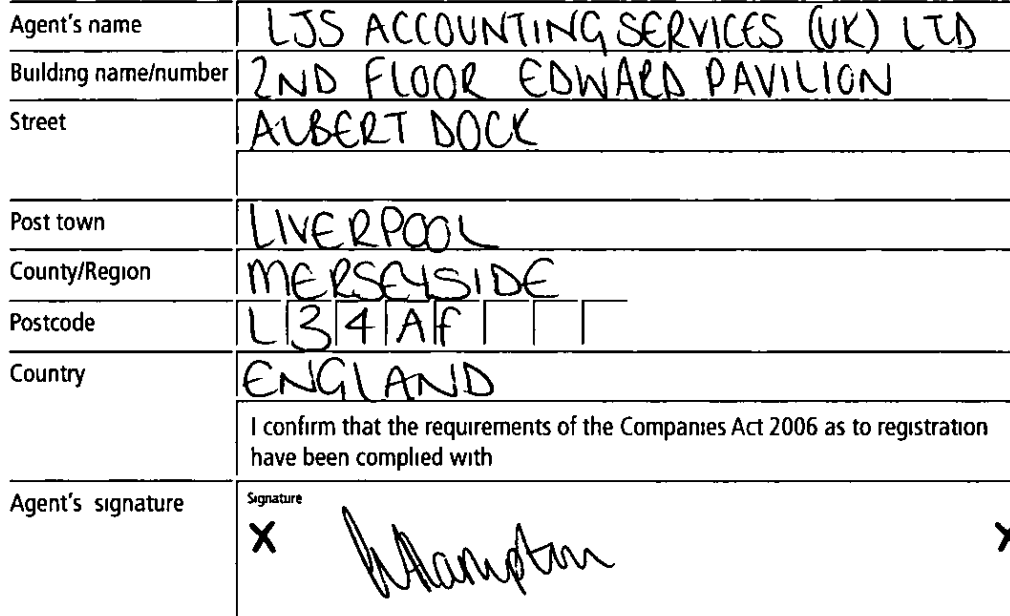 Agent's name LJS ACCOUNTING SERVICES (UK) LTD
Building name/number 2ND FLOOR EDWARD PAVILION
Street ALBERT DOCK
Post town LIVERPOOL
County/Region MERSEYSIDE
Postcode L34AF
Country ENGLAND
I confirm that the requirements of the Companies Act 2006 as to registration
have been complied with
Agent's signature Signature
X Hampton X